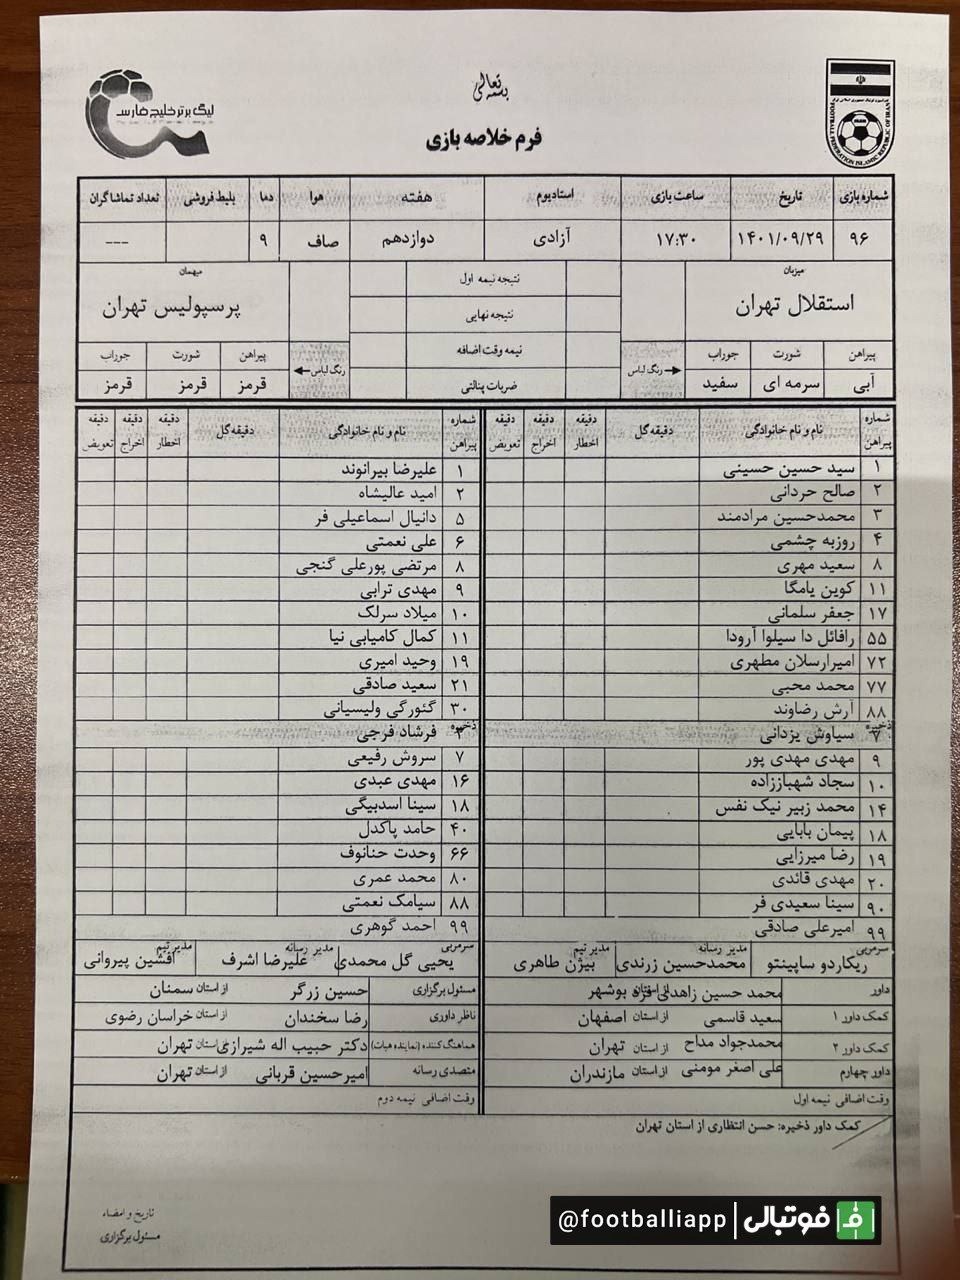 بسمه تعالی
لیگ برتر خلیج فارس
FOOTBALL FEDERATION ISLAMIC REPUBLIC OF IRAN
فرم خلاصه بازی
شماره بازی تاریخ ساعت بازی استادیوم هفته هوا دما بلیط فروشی تعداد تماشاگران
۹۶ ۱۴۰۱/۰۹/۲۹ ۱۷:۳۰ آزادی دوازدهم صاف ۹ ---
میزبان نتیجه نیمه اول میهمان
استقلال تهران نتیجه نهایی پرسپولیس تهران
نیمه وقت اضافه
ضربات پنالتی
پیراهن شورت جوراب رنگ لباس رنگ لباس پیراهن شورت جوراب
آبی سرمه ای سفید قرمز قرمز قرمز
شماره پیراهن نام و نام خانوادگی دقیقه گل دقیقه اخطار دقیقه اخراج دقیقه تعویض شماره پیراهن نام و نام خانوادگی دقیقه گل دقیقه اخطار دقیقه اخراج دقیقه تعویض
۱ سید حسین حسینی ۱ علیرضا بیرانوند
۲ صالح حردانی ۲ امید عالیشاه
۳ محمدحسین مرادمند ۵ دانیال اسماعیلی فر
۴ روزبه چشمی ۶ علی نعمتی
۸ سعید مهری ۸ مرتضی پورعلی گنجی
۱۱ کوین یامگا ۹ مهدی ترابی
۱۷ جعفر سلمانی ۱۰ میلاد سرلک
۵۵ رافائل دا سیلوا آرودا ۱۱ کمال کامیابی نیا
۷۲ امیرارسلان مطهری ۱۹ وحید امیری
۷۷ محمد محبی ۲۱ سعید صادقی
۸۸ آرش رضاوند ۳۰ گئورگی ولیسیانی
ذخیره ۷ سیاوش یزدانی ذخیره ۳ فرشاد فرجی
۹ مهدی مهدی پور ۷ سروش رفیعی
۱۰ سجاد شهباززاده ۱۶ مهدی عبدی
۱۴ محمد زبیر نیک نفس ۱۸ سینا اسدبیگی
۱۸ پیمان بابایی ۴۰ حامد پاکدل
۱۹ رضا میرزایی ۶۶ وحدت حنانوف
۲۰ مهدی قائدی ۸۰ محمد عمری
۹۰ سینا سعیدی فر ۸۸ سیامک نعمتی
۹۹ امیرعلی صادقی ۹۹ احمد گوهری
سرمربی ریکاردو ساپینتو مدیر رسانه محمدحسین زرندی مدیر تیم بیژن طاهری سرمربی یحیی گل محمدی مدیر رسانه علیرضا اشرف مدیر تیم افشین پیروانی
داور محمد حسین زاهدی فر از استان بوشهر مسئول برگزاری حسین زرگر از استان سمنان
کمک داور ۱ سعید قاسمی از استان اصفهان ناظر داوری رضا سخندان از استان خراسان رضوی
کمک داور ۲ محمدجواد مداح از استان تهران هماهنگ کننده (نماینده هیات) دکتر حبیب اله شیرازی از استان تهران
داور چهارم علی اصغر مومنی از استان مازندران متصدی رسانه امیرحسین قربانی از استان تهران
وقت اضافی نیمه اول وقت اضافی نیمه دوم
کمک داور ذخیره: حسن انتظاری از استان تهران
تاریخ و امضاء
مسئول برگزاری
@footballiapp فوتبالی